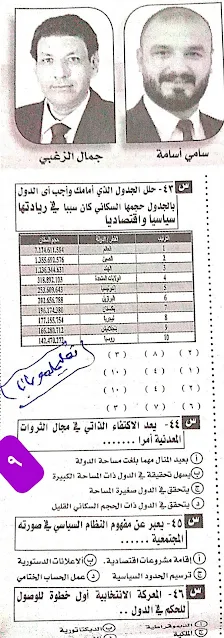 سامي أسامة
جمال الزغبي
س ٤٣- حلل الجدول الذي أمامك وأجب أى الدول
بالجدول حجمها السكاني كان سببا في ريادتها
سياسيا واقتصاديا
1 العالم 7.174.611.584
2 الصين 1.355.692.576
3 الهند 1.236.344.631
4 الولايات المتحدة 318.892.103
5 إندونيسيا 253.609.643
6 البرازيل 202.656.788
باكستان 196.174.380
8 نيجيريا 177.155.754
9 بنجلاديش 166.280.712
10 روسيا 142.470.272
(٢) (٨) (٣) (٨)
(٤) (١) (١٠)
(٤) (١٠)
(٦) (٧) (٣)
٩
س ٤٤- يعد الاكتفاء الذاتي في مجال الثروات
المعدنية أمرا .......
أ بعيد المثال مهما بلغت مساحة الدولة
ب يسهل تحقيقة في الدول ذات المساحة الكبيرة
ج يتحقق في الدول صغيرة المساحة
د يتحقق في الدول ذات الحجم السكاني القليل
س ٤٥- يعبر عن مفهوم النظام السياسي في صورته
المجتمعية .......
أ إقامة مشروعات اقتصادية. ب الاعلانات الدستورية
ج ترسيم الحدود السياسية د عمل الحساب الختامي
س ٤٦- المعركة الانتخابية أول خطوة للوصول
للحكم في الدول ..
أ الديموقراطية ب الديكتاتورية
الملكية